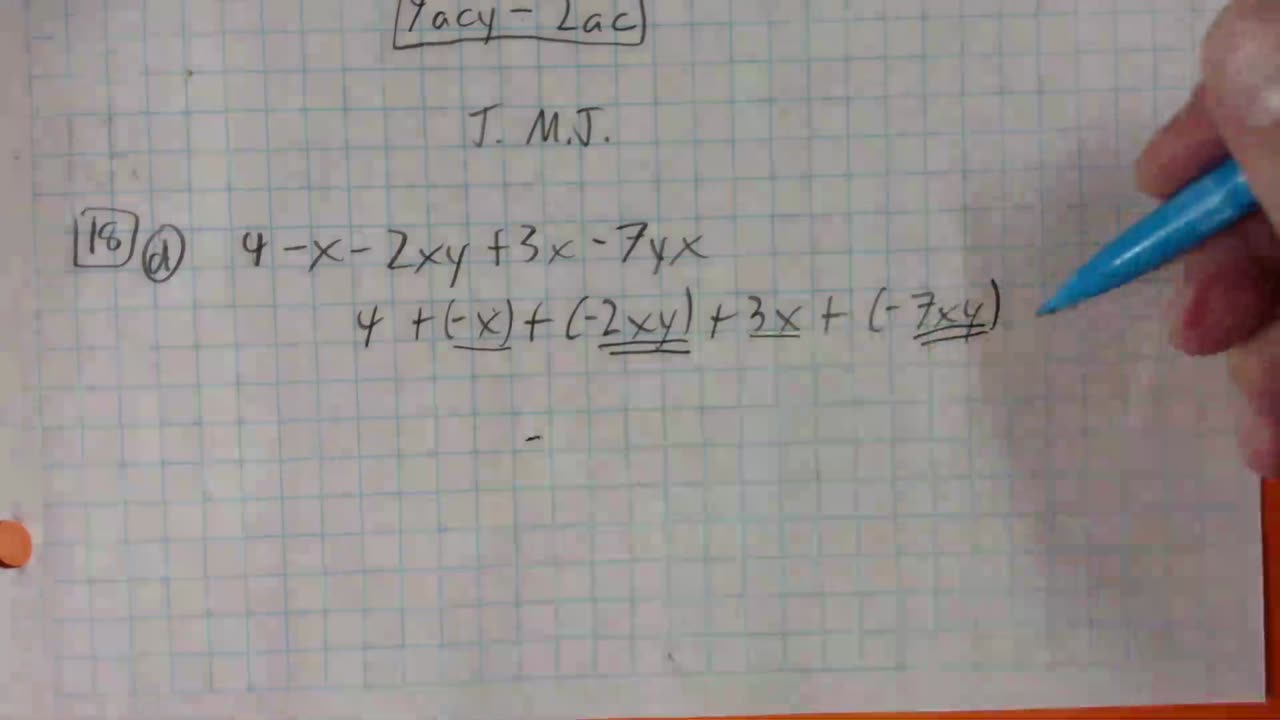 9acy - 2ac
J. M.J.
18 d 4 - x - 2xy + 3x - 7yx
4 + (-x) + (-2xy) + 3x + (-7xy)
-